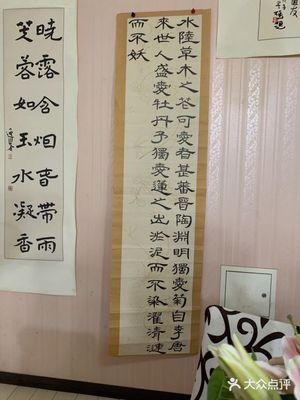 水陸草木之花可愛者甚蕃晉陶淵明獨愛菊自李唐
來世人盛愛牡丹予獨愛蓮之出淤泥而不染濯清漣
而不妖
曉露含烟帶雨
芙蓉如玉水凝香
大众点评